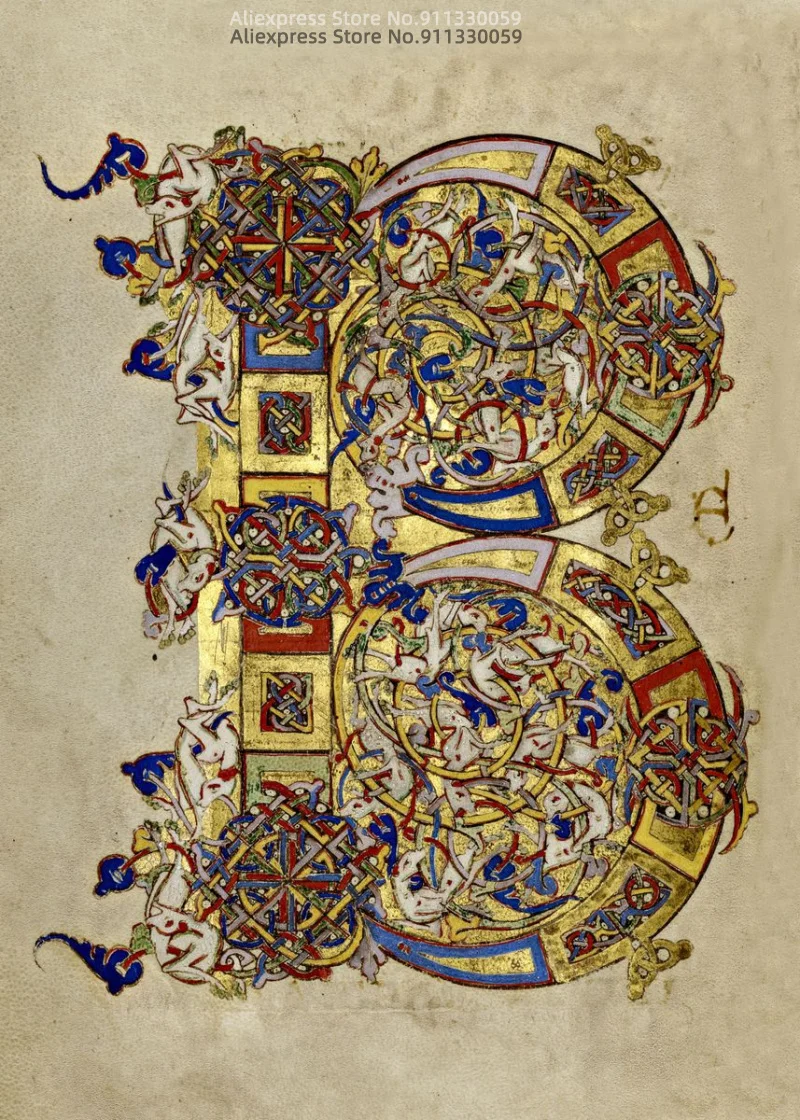 Aliexpress Store No.911330059
Aliexpress Store No.911330059
B